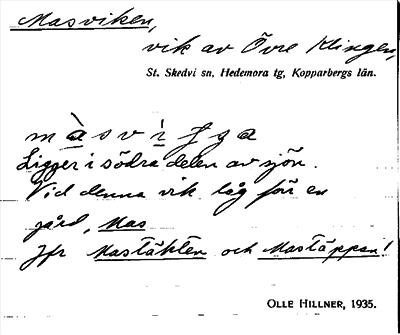 Masviken,
vik av Övre Klingen,
St. Skedvi sn, Hedemora tg, Kopparbergs län.
Ligger i södra delen av sjön.
Vid denna vik låg förr en
gård, Mas
Jfr Mastäkten och Mastäppan!
OLLE HILLNER, 1935.